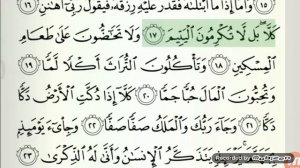 ١٥ وَأَمَّآ إِذَا مَا ٱبْتَلَىٰهُ فَقَدَرَ عَلَيْهِ رِزْقَهُۥ فَيَقُولُ رَبِّىٓ أَهَٰنَنِ ١٦
كَلَّا ۖ بَل لَّا تُكْرِمُونَ ٱلْيَتِيمَ ١٧ وَلَا تَحَٰٓضُّونَ عَلَىٰ طَعَامِ
ٱلْمِسْكِينِ ١٨ وَتَأْكُلُونَ ٱلتُّرَاثَ أَكْلًا لَّمًّا ١٩
وَتُحِبُّونَ ٱلْمَالَ حُبًّا جَمًّا ٢٠ كَلَّآ إِذَا دُكَّتِ ٱلْأَرْضُ دَكًّا
دَكًّا ٢١ وَجَآءَ رَبُّكَ وَٱلْمَلَكُ صَفًّا صَفًّا ٢٢ وَجِا۟ىٓءَ يَوْمَئِذٍۭ
يَتَذَكَّرُ ٱلْإِنسَٰنُ وَأَنَّىٰ لَهُ ٱلذِّكْرَىٰ ٢٣